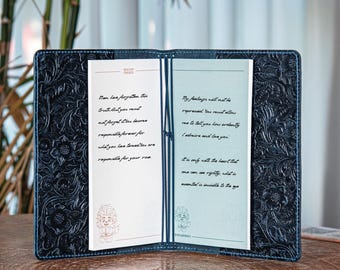 Men have forgotten this
truth. But you must
not forget it. You become
responsible forever for
what you have tamed. You are
responsible for your rose.
My feelings will not be
repressed. You must allow
me to tell you how ardently
I admire and love you.
It is only with the heart that
one can see rightly; what is
essential is invisible to the eye